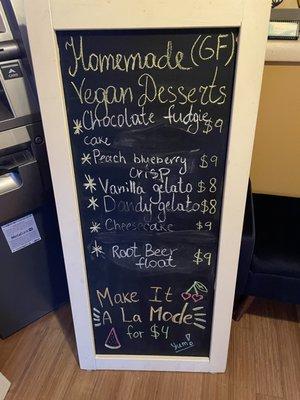 Homemade (GF)
Vegan Desserts
* Chocolate fudge $9
cake
* Peach blueberry $9
crisp
* Vanilla gelato $8
* Dandy gelato $8
* Cheesecake $9
* Root Beer $9
float
Make It
A La Mode
for $4
Yum!